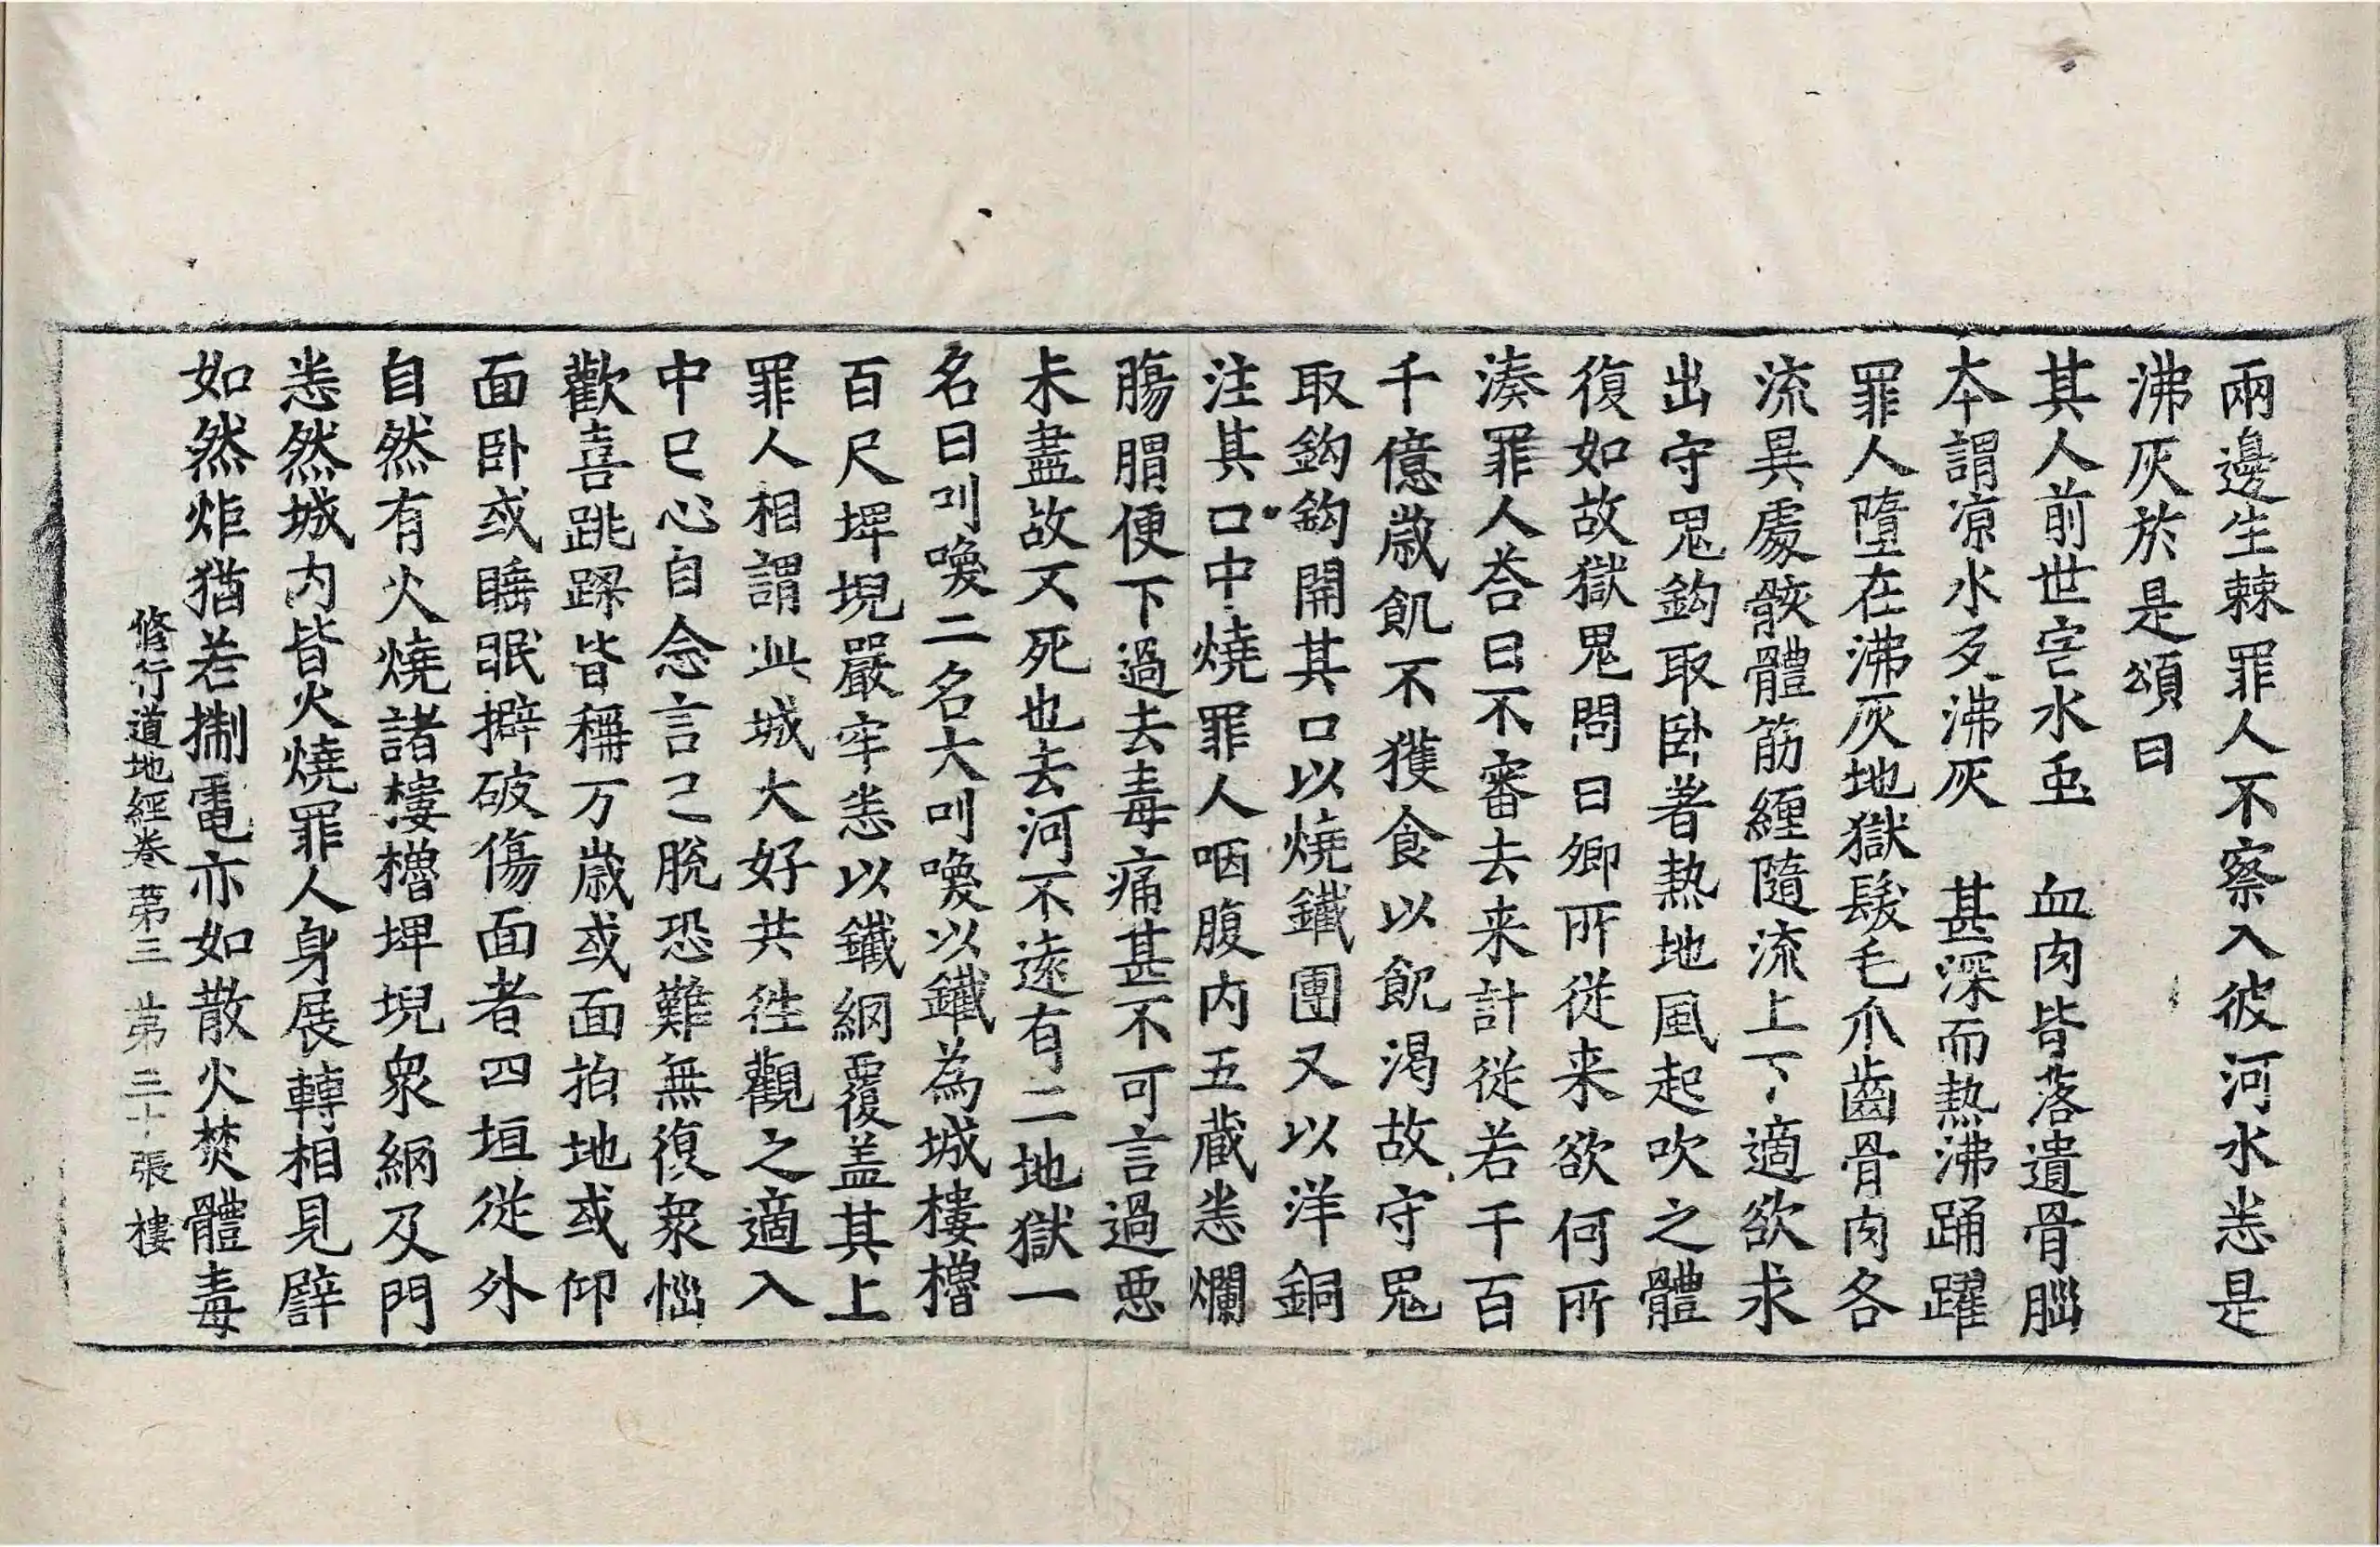 兩邊生棘罪人不察入彼河水恙是
沸灰於是頌曰
其人前世害水䖝　血肉皆落遺骨𦠄
本謂凉水歹沸灰　甚深而熱沸踊躍
罪人墮在沸灰地獄髮毛爪齒骨肉各
流異處骸體筋纏隨流上下適欲求
出守鬼鈎取卧著熱地風起吹之體
復如故獄鬼問曰卿所從来欲何所
湊罪人荅曰不審去来計從若干百
千億歲飢不獲食以飢渴故守鬼
取鈎鈎開其口以燒鐵團又以洋銅
注其口中燒罪人咽腹内五藏恙爛
腸胃便下過去毒痛甚不可言過惡
未盡故不死也去河不遠有二地獄一
名曰叫喚二名大叫喚以鐵為城樓櫓
百尺埤堄嚴牢恙以鐵網覆盖其上
罪人相謂此城大好共徃觀之適入
中已心自念言已脫恐難無復衆惱
歡喜跳踝皆稱万歲或面拍地或仰
面卧或睡眠擗破傷面者四垣從外
自然有火燒諸樓櫓埤堄衆網及門
恙然城内皆火燒罪人身展轉相見譬
如然炬猶若掣電亦如散火焚體毒
修行道地經卷第三　第三十張　樓